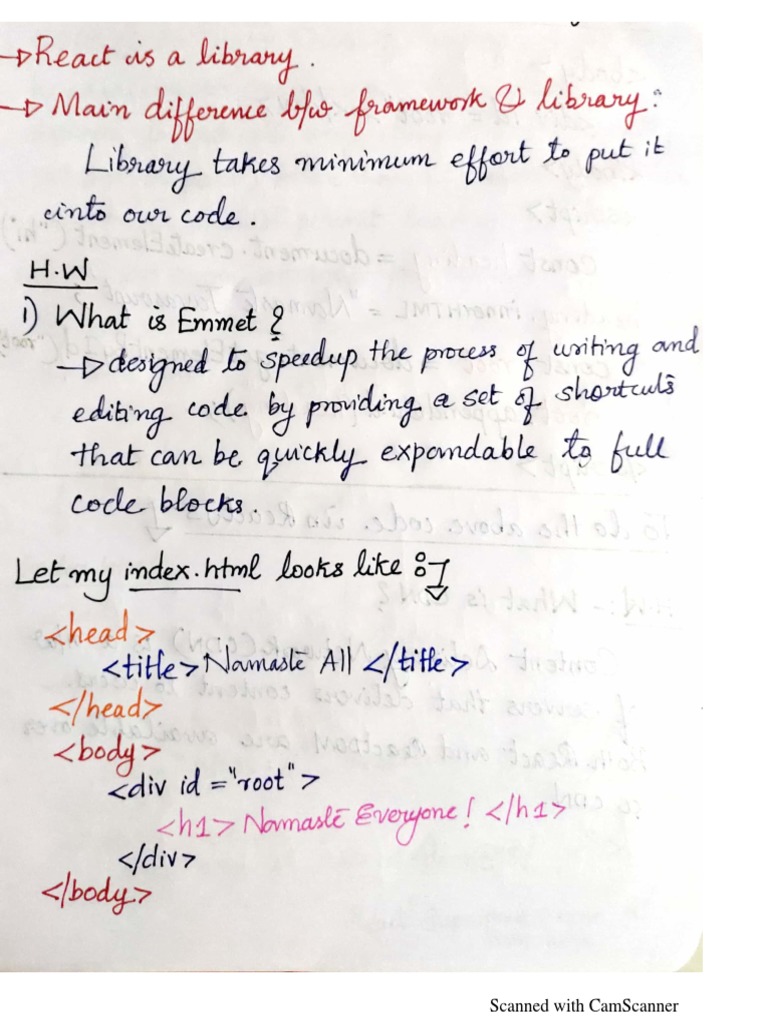 → React is a library.
→ Main difference b/w framework & library:
Library takes minimum effort to put it
into our code.
H.W
1) What is Emmet?
→ designed to speedup the process of writing and
editing code by providing a set of shortcuts
that can be quickly expandable to full
code blocks.
Let my index.html looks like :
<head>
<title> Namaste All </title>
</head>
<body>
<div id = "root">
<h1> Namaste Everyone! </h1>
</div>
</body>
Scanned with CamScanner